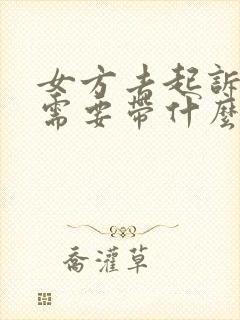 女方去起訴
需要帶什麼
喬灌草